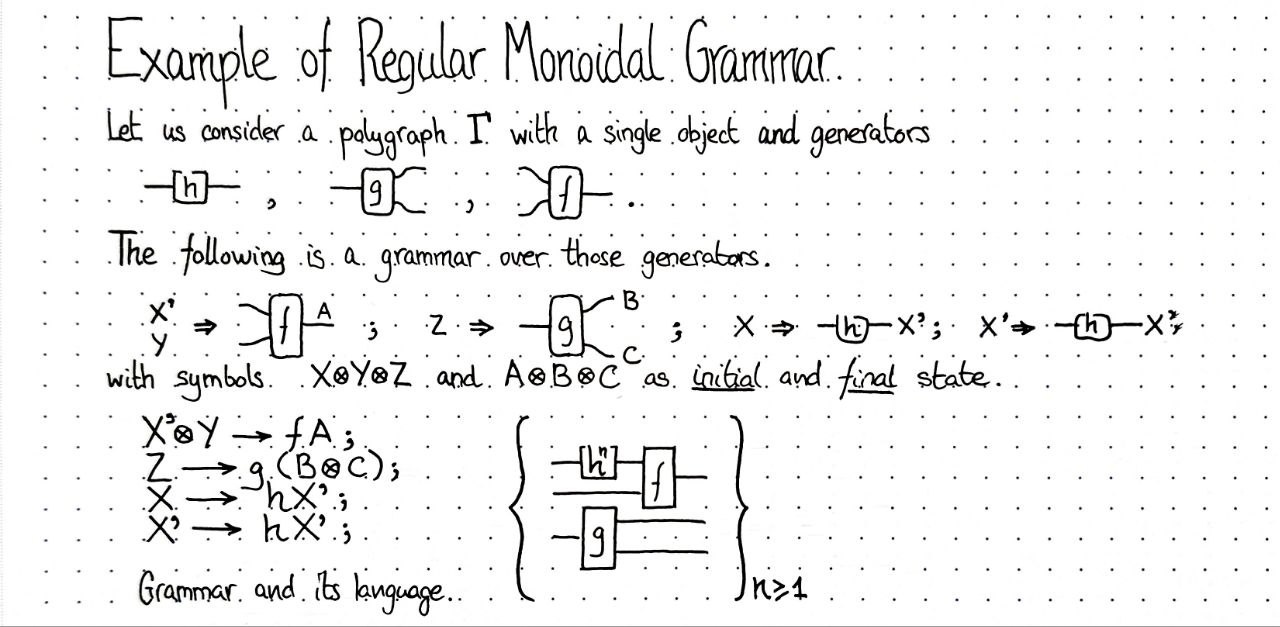 Example of Regular Monoidal Grammar.
Let us consider a polygraph Γ with a single object and generators
h , g , f .
The following is a grammar over those generators.
X' Y ⇒ f A ; Z ⇒ g B C ; X ⇒ h X' ; X' ⇒ h X' ;
with symbols X⊗Y⊗Z and A⊗B⊗C as initial and final state.
X'⊗Y → f A ;
Z → g (B⊗C) ;
X → h X' ;
X' → h X' ;
{ hⁿ f g } n≥1
Grammar and its language.